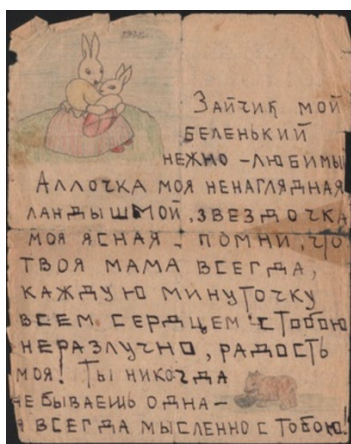 Зайчик мой
беленький
нежно-любимы
Аллочка моя ненаглядная
ландыш мой, звездочка
моя ясная - помни, что
твоя мама всегда,
каждую минуточку
всем сердцем с тобою
неразлучно, радость
моя! Ты никогда
не бываешь одна -
я всегда мысленно с тобою!